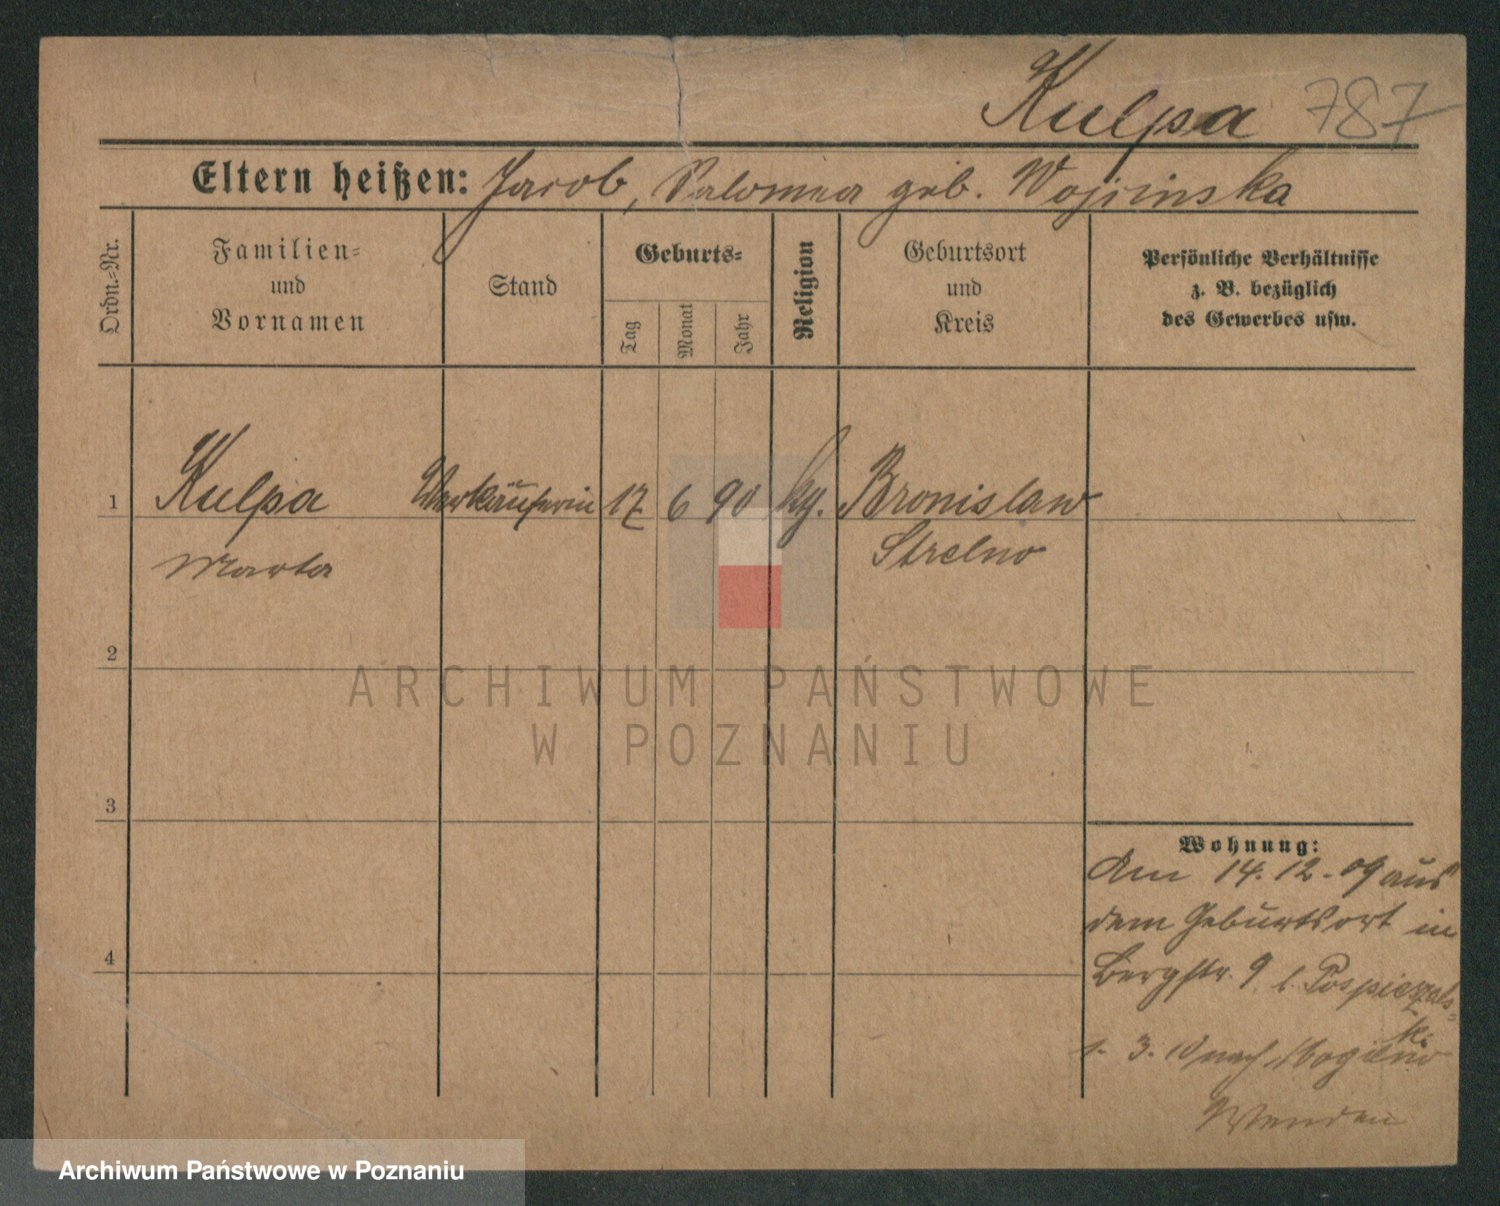 Kulpa 787
Eltern heißen: Jacob, Salomea geb. Wojcinska
Ordn.-Nr.
Familien-
und
Vornamen
Stand
Geburts-
Tag
Monat
Jahr
Religion
Geburtsort
und
Kreis
Persönliche Verhältnisse
z. B. bezüglich
des Gewerbes usw.
1 Kulpa Verkäuferin 17 6 90 kg. Bronislaw
Marta Strelno
2
3
4
Wohnung:
Am 14.12.09 aus
dem Geburtsort in
Bergstr. 9 b. Pospieszals-
ki
1. 3. 10 nach Mogilno
Wenden
ARCHIWUM PAŃSTWOWE
W POZNANIU
Archiwum Państwowe w Poznaniu